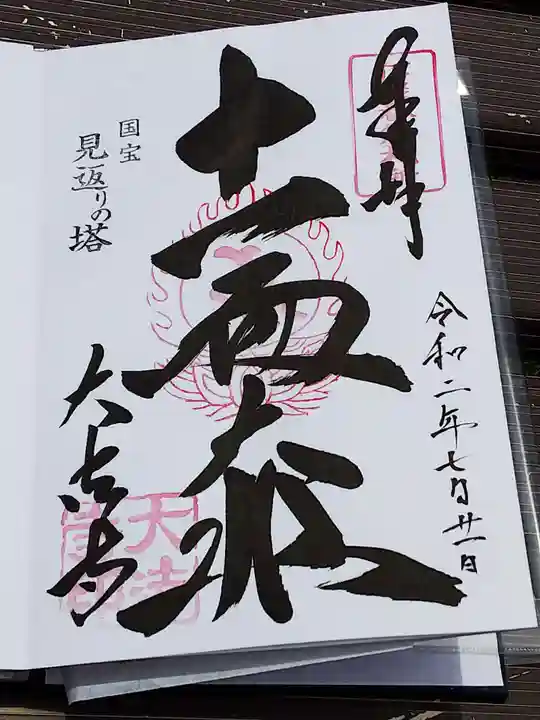 奉拝
令和二年七月廿一日
十一面大悲
国宝
見返りの塔
大法寺